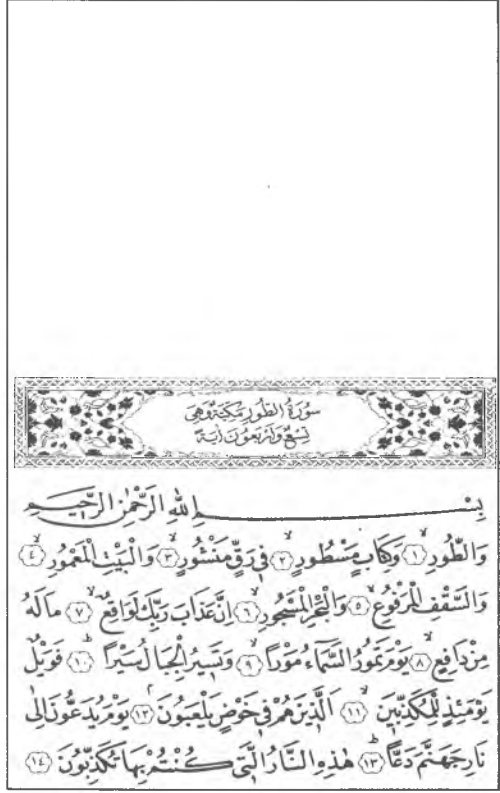 سُورَةُ الطُّورِ مَكِّيَّةٌ وَهِيَ
تِسْعٌ وَأَرْبَعُونَ اٰيَةً
بِسْمِ اللّٰهِ الرَّحْمٰنِ الرَّحِيمِ
وَالطُّورِۙ ﴿١﴾ وَكِتَابٍ مَسْطُورٍۙ ﴿٢﴾ فِي رَقٍّ مَنْشُورٍۙ ﴿٣﴾ وَالْبَيْتِ الْمَعْمُورِۙ ﴿٤﴾
وَالسَّقْفِ الْمَرْفُوعِۙ ﴿٥﴾ وَالْبَحْرِ الْمَسْجُورِۙ ﴿٦﴾ اِنَّ عَذَابَ رَبِّكَ لَوَاقِعٌۙ ﴿٧﴾ مَالَهُ
مِنْ دَافِعٍۙ ﴿٨﴾ يَوْمَ تَمُورُ السَّمَٓاءُ مَوْرًاۙ ﴿٩﴾ وَتَسِيرُ الْجِبَالُ سَيْرًاۜ ﴿١٠﴾ فَوَيْلٌ
يَوْمَئِذٍ لِلْمُكَذِّبِينَۙ ﴿١١﴾ اَلَّذِينَ هُمْ فِي خَوْضٍ يَلْعَبُونَۢ ﴿١٢﴾ يَوْمَ يُدَعُّونَ اِلٰى
نَارِ جَهَنَّمَ دَعًّاۜ ﴿١٣﴾ هٰذِهِ النَّارُ الَّتِي كُنْتُمْ بِهَا تُكَذِّبُونَ ﴿١٤﴾